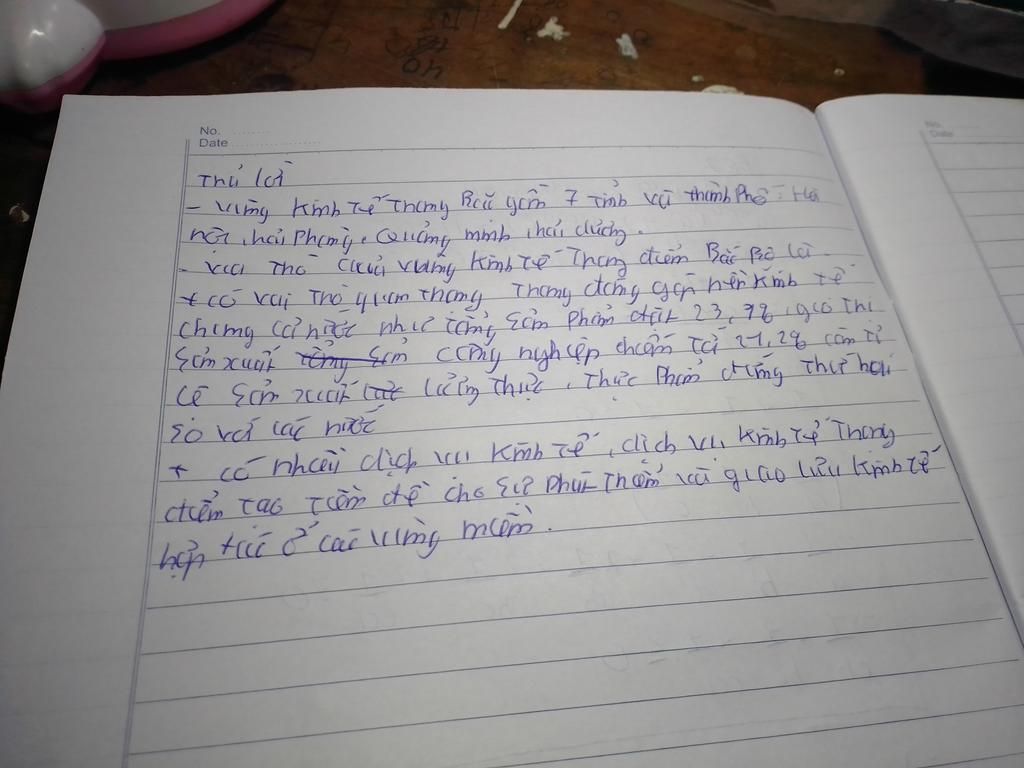 No.
Date
Trả lời
- Vùng kinh tế trọng Bắc gồm 7 tỉnh và thành phố: Hà
nội, hải phòng, Quảng ninh, hải dương.
- vai trò của vùng kinh tế trọng điểm Bắc Bộ là
+ có vai trò quan trọng trong đóng góp nền kinh tế
chung cả nước như tổng sản phẩm đạt 23,7%, giá trị
sản xuất công nghiệp chiếm tới 21,2% còn tỉ
lệ sản xuất lương thực, thực phẩm đứng thứ hai
so với các nước
+ có nhiều dịch vụ kinh tế, dịch vụ kinh tế trọng
điểm tạo tiền đề cho sự phát triển và giao lưu kinh tế
hợp tác ở các vùng miền.